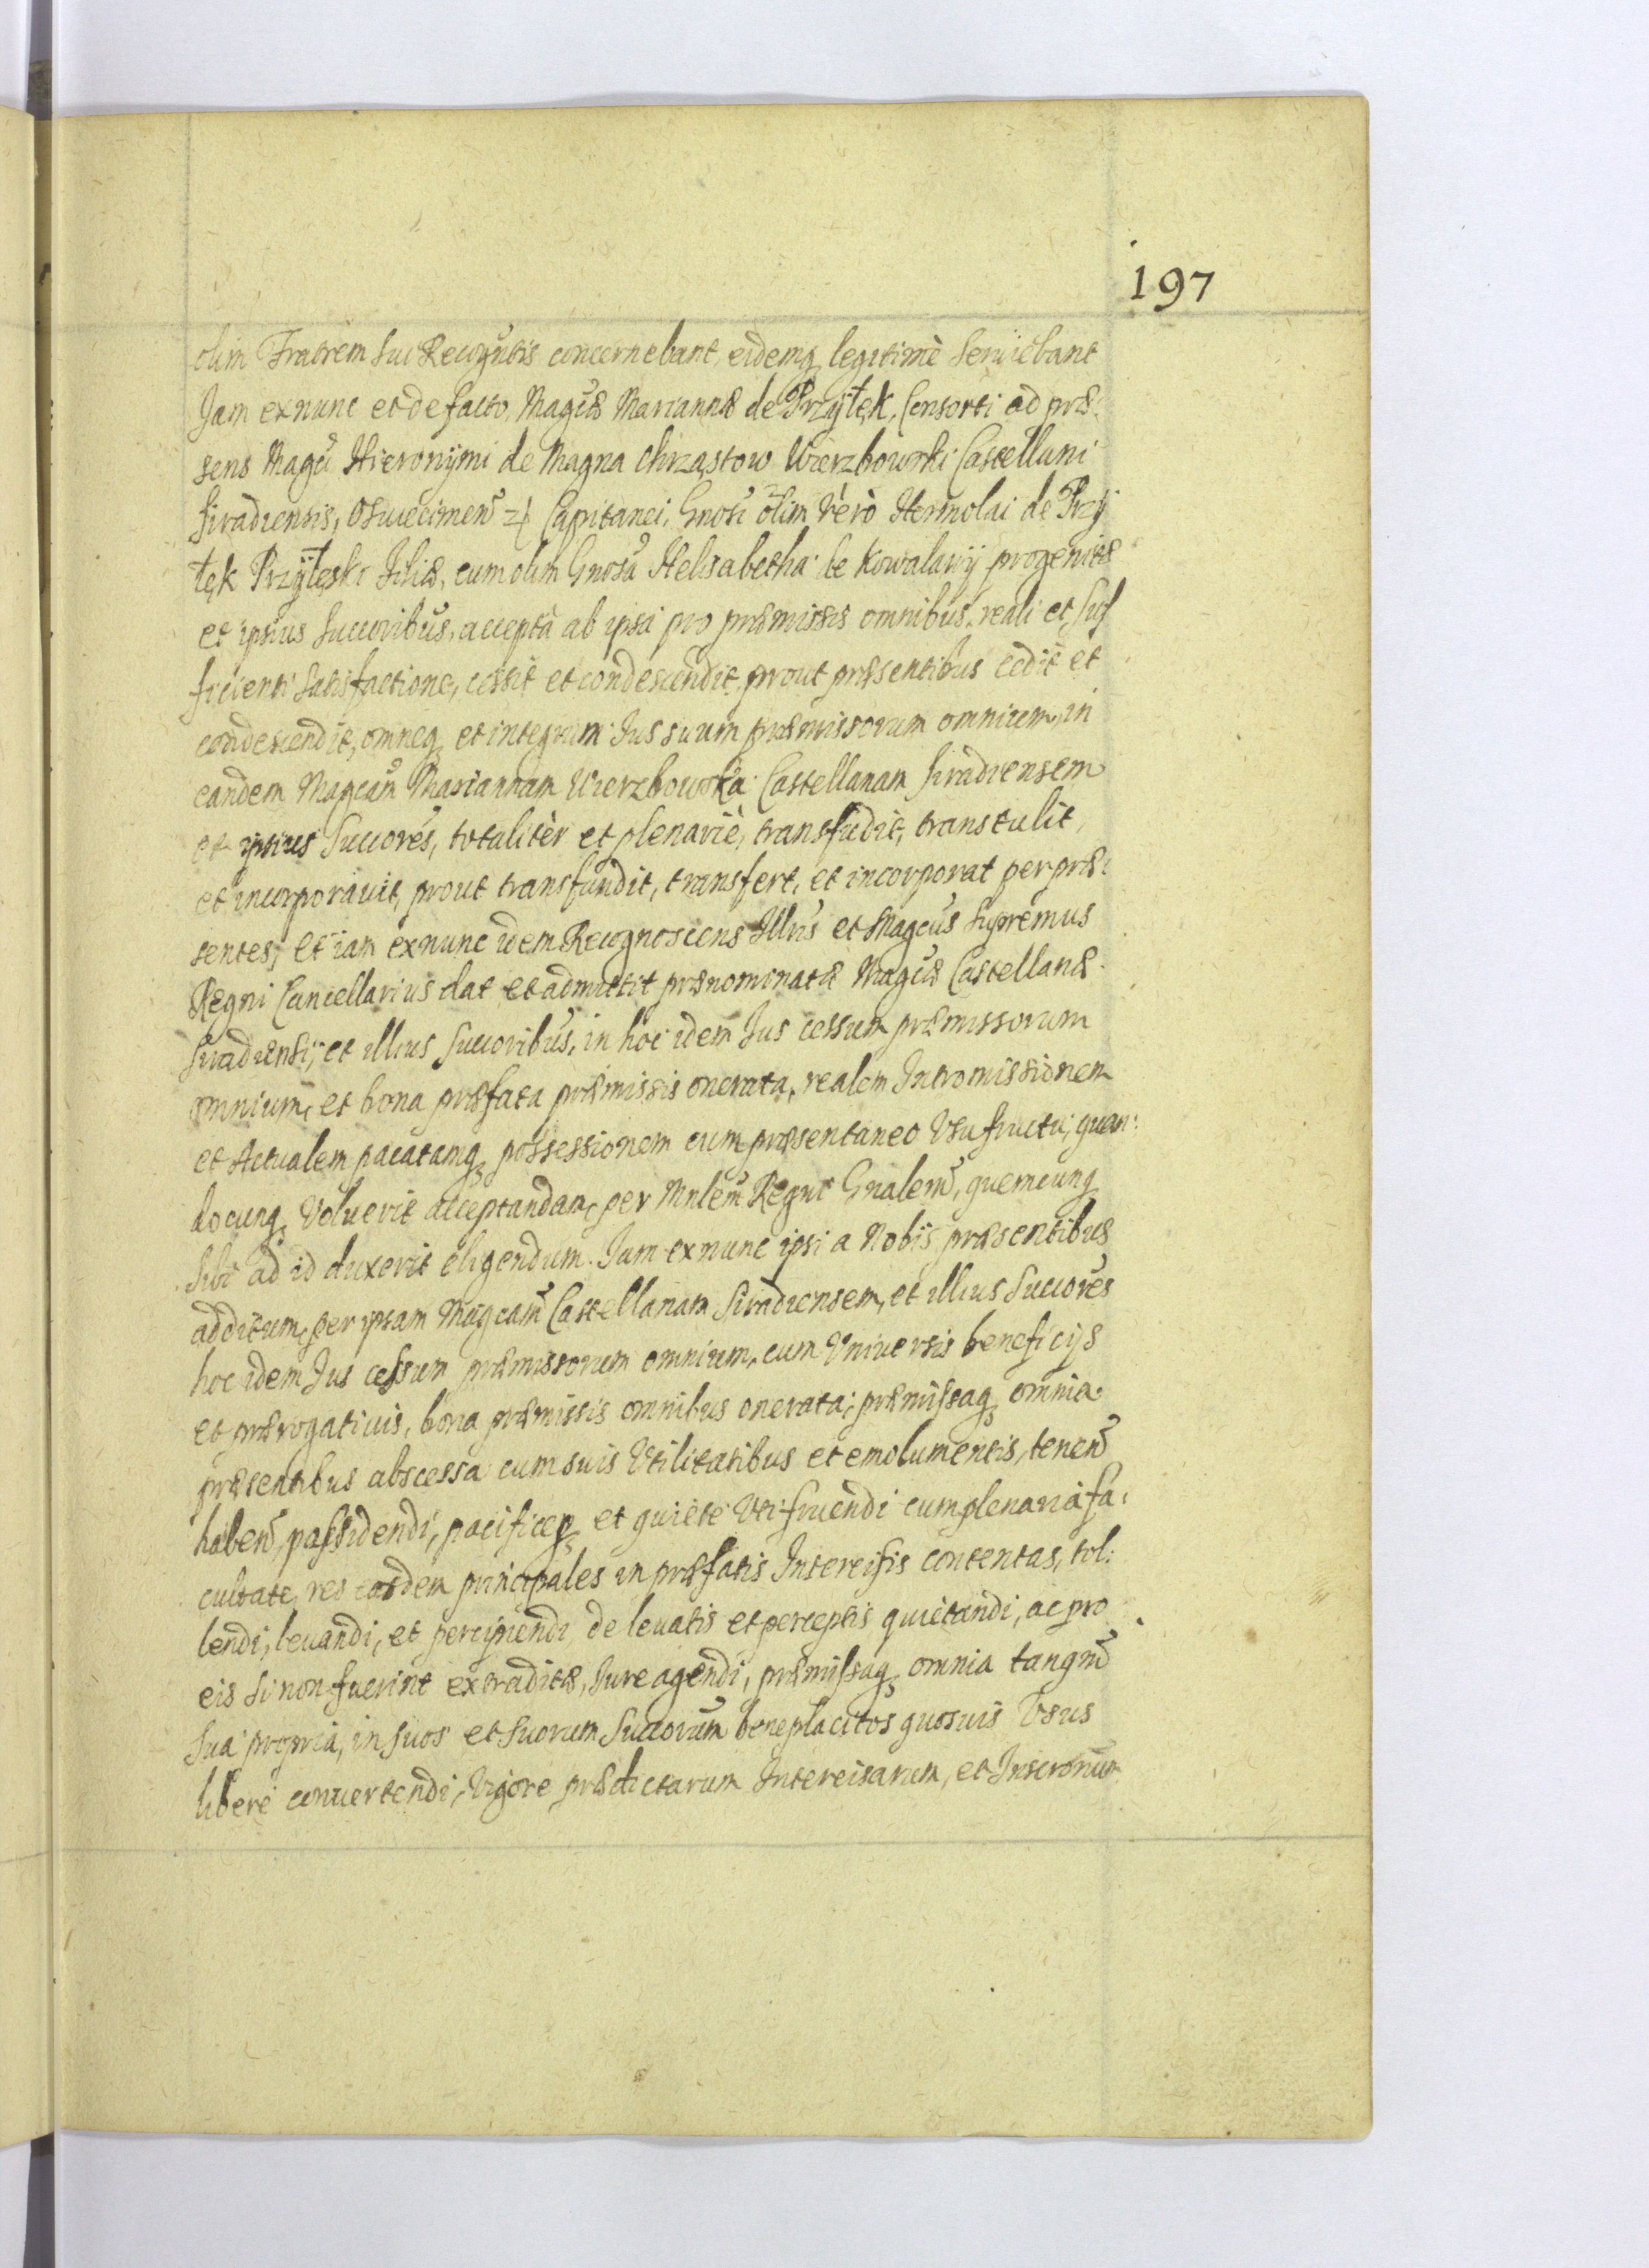 197
olim Fratrem sui Recogntis concernebant, eidemq legitimè seruiebant
Jam exnunc et de facto Magcæ Mariannæ de Przÿtęk, Consorti ad præ:
sens Magci Hieronÿmi de Magna Chrząstow Wierzbowski Castellani
Siradiensis, Oswiecimen Capitanei, Gnosi olim vèrò Hermolai de Przÿ
tęk Przÿtęski Filiæ, cum olim Gnosa Helisabetha de Kowalewÿ progenitæ
et ipsius Succoribus, acceptà ab ipsa pro præmissis omnibus, reali et suf
ficienti satisfactione, cessit et condescendit, prout præsentibus cedit et
condescendit, omneq et integrum Jus suum præmissorum omnium, in
eandem Magcam Mariannam Wierzbowska Castellanam Siradiensem
et ipsius Succores, totalitèr et plenariè, transfudit, transtulit,
et incorporauit, prout transfundit, transfert, et incorporat per præ:
sentes; Et iam exnunc idem Recognoscens Illris et Magcus Supremus
Regni Cancellarius dat et admittit prænominatæ Magcæ Castellanæ
Siradiensi, et illius Succoribus, in hoc idem Jus cessum præmissorum
omnium, et bona præfata præmissis onerata, realem Intromissionem
et Actualem pacatamq possessionem cum præsentaneo Vsufructu, quan:
docunq Voluerit acceptandam, per Mnlem Regni Gnalem, quemcunq
sibi ad id duxerit eligendum. Jam exnunc ipsi a Nobis præsentibus
additum, per ipsam Magcam Castellanam Siradiensem, et illius Succores
hoc idem Jus cessum præmissorum omnium, cum Vniuersis beneficijs
et prærogatiuis, bona præmissis omnibus onerata; præmissaq omnia
præsentibus abscessa cum suis Vtilitatibus et emolumentis, tenen
haben, possidendi, pacificeq et quietè Vti fruendi cum plenaria fa:
cultate, res easdem principales in præfatis Intercisis contentas, tol:
lendi, leuandi, et percipiendi, de leuatis et perceptis quietandi, ac pro
eis si non fuerint extraditæ, Jure agendi, præmissaq omnia tanqm
sua propria, in suos et suorum Succorum beneplacitos quosuis Vsus
liberè conuertendi, Vigore prædictarum Intercisarum, et Inscronum